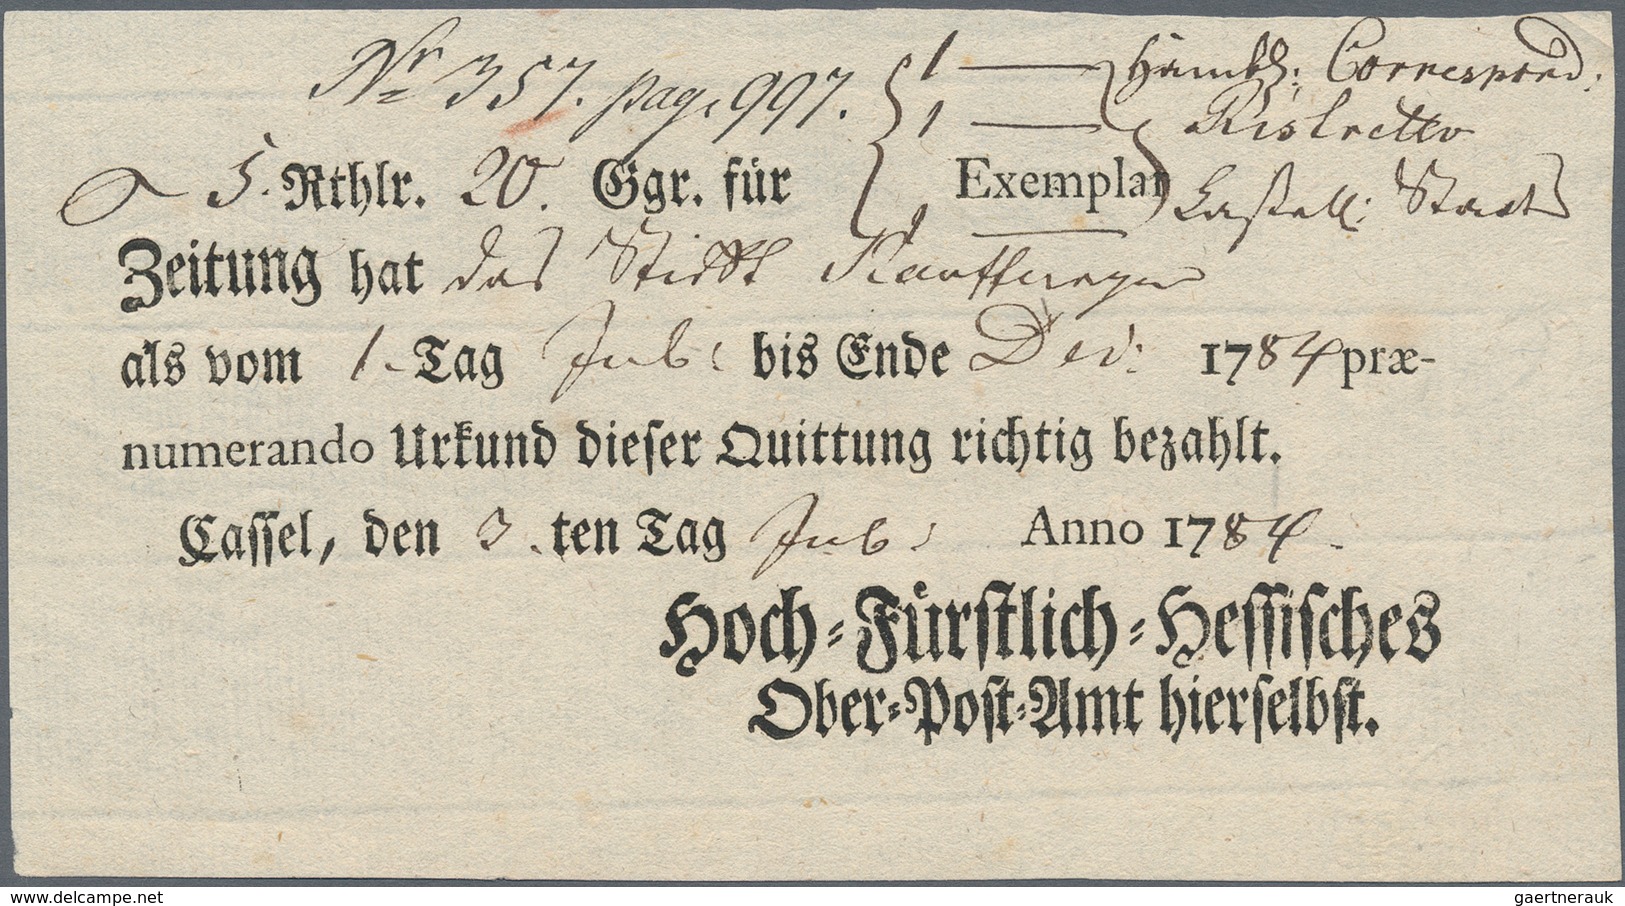 Nr 357. pag. 997. 1 — Hamb: Correspond:
1 — Ristretto
5. Rthlr. 20. Ggr. für 1 Exemplar Cassell: Staats
Zeitung hat das Stifft Kauffungen
als vom 1. Tag Jul: bis Ende Dec: 1784 præ-
numerando Urkund dieser Quittung richtig bezahlt.
Cassel, den 3. ten Tag Jul: Anno 1784.
Hoch-Fürstlich-Hessisches
Ober-Post-Amt hierselbst.
www.delcampe.net
gaertnerauk